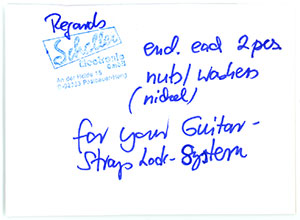 Regards
Schaller
Electronic
GmbH
An der Heide 15
end. each 2 pcs
nuts/washers
(nickel)
for your Guitar-
Strap Lock-System